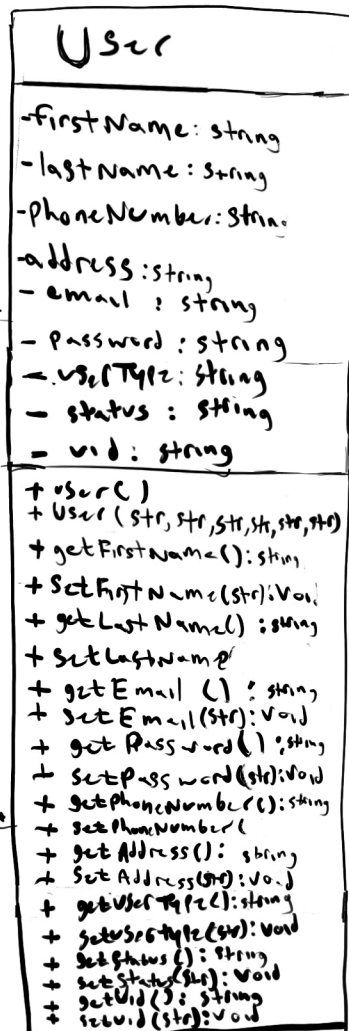 User
-firstName: string
- lastName: string
-phoneNumber: string
-address: string
- email : string
- password : string
- userType: string
- status : string
- uid : string
+ user()
+ User (str, str, str, str, str, str)
+ getFirstName(): string
+ SetFirstName(str): Void
+ getLastName() : string
+ setLastName
+ getEmail () : string
+ setEmail(str): Void
+ getPassword() : string
+ setPassword(str): Void
+ getPhoneNumber(): string
+ setPhoneNumber(
+ getAddress(): string
+ SetAddress(str): Void
+ getUserType(): string
+ setUserType(str): Void
+ getStatus() : string
+ setStatus(str): Void
+ getUid() : string
+ setUid(str): Void